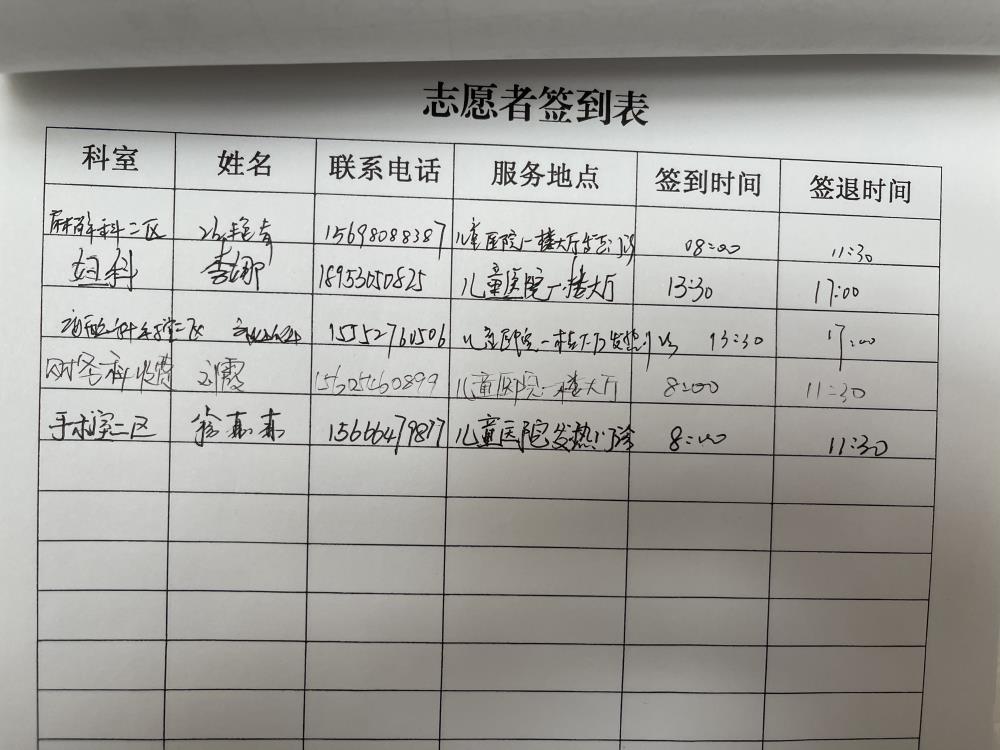 志愿者签到表
科室 姓名 联系电话 服务地点 签到时间 签退时间
麻醉科二区 15698088387 儿童医院一楼大厅 08:00 11:30
妇科 李娜 18953050825 儿童医院一楼大厅 13:30 17:00
二区 15552760506 儿童医院一楼大厅发热门诊 13:30 17:00
财务科收费 刘霞 儿童医院一楼大厅 8:00 11:30
手术室二区 徐森森 15666479877 儿童医院发热门诊 8:00 11:30